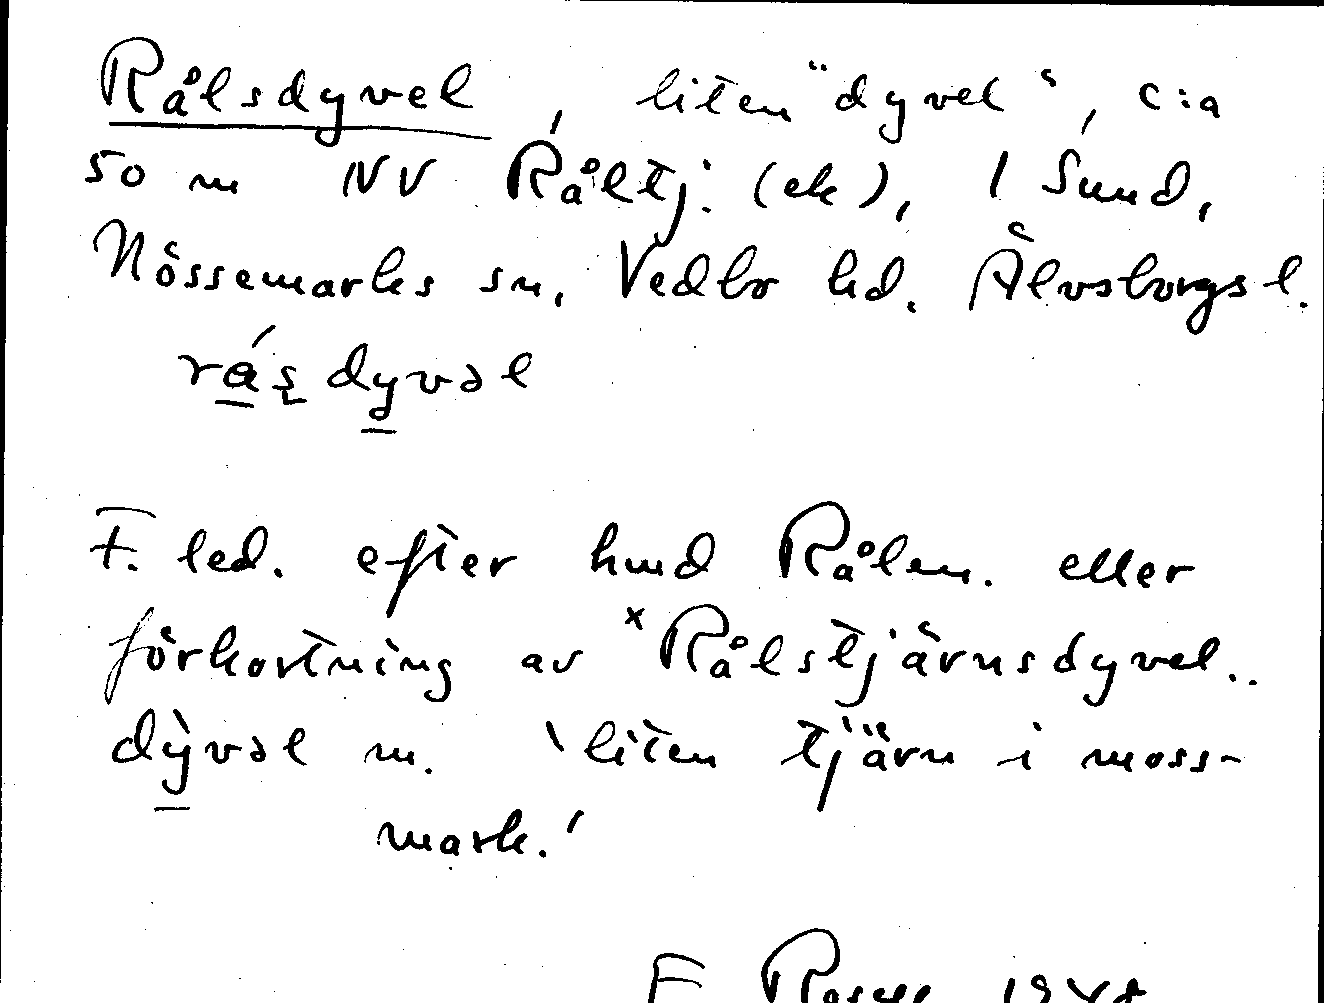 Rålsdyvel, liten "dyvel", c:a
50 m NV Råltj. (ek), 1 Sund,
Nössemarks sn, Vedbo hd. Älvsborgs l.
dyvəl
F. led. efter hmd Rålen. eller
förkortning av ˣRålstjärnsdyvel..
dỳvəl m. 'liten tjärn i moss-
mark.'
F